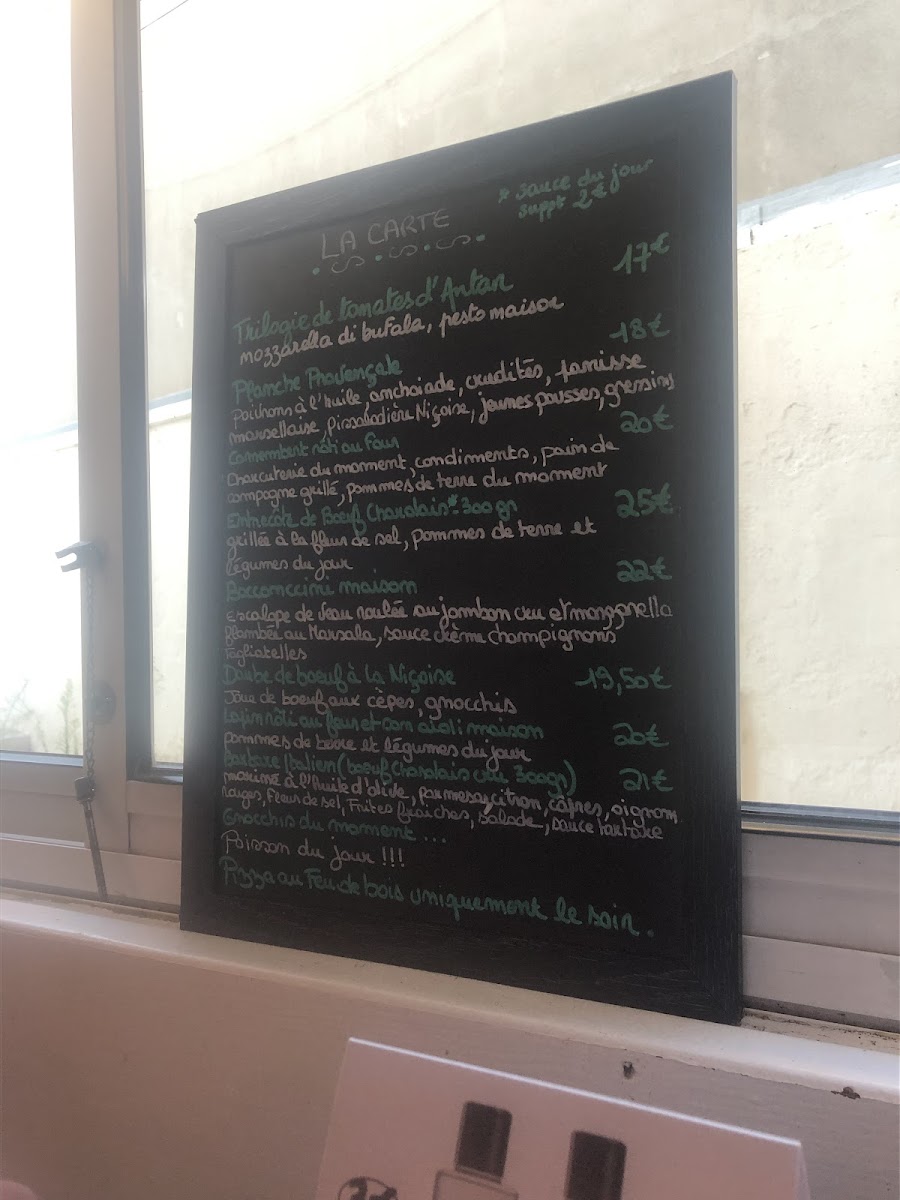 * sauce du jour
suppt 2€
LA CARTE
Trilogie de tomates d'Antan 17€
mozzarella di bufala, pesto maison
Planche Provençale 18€
Poivrons à l'huile, anchoiade, crudités, panisse
marseillaise, pissaladière Niçoise, jeunes pousses, gressins
Camembert rôti au four 20€
Charcuterie du moment, condiments, pain de
campagne grillé, pommes de terre du moment
Entrecôte de Bœuf Charolais* 300 gr 25€
grillée à la fleur de sel, pommes de terre et
légumes du jour
Bocconccini maison 22€
Escalope de veau roulée au jambon cru et mozzarella
flambée au Marsala, sauce crème champignons
Tagliatelles
Daube de boeuf à la Niçoise 19,50€
Joue de boeuf aux cèpes, gnocchis
rôti au four et son aïoli maison 20€
pommes de terre et légumes du jour
Italien (boeuf Charolais cru 300gr) 21€
mariné à l'huile d'olive, parmesan, citron, câpres, oignons
rouges, fleur de sel, Frites fraîches, salade, sauce tartare
Gnocchis du moment...
Poisson du jour !!!
Pizza au Feu de bois uniquement le soir.